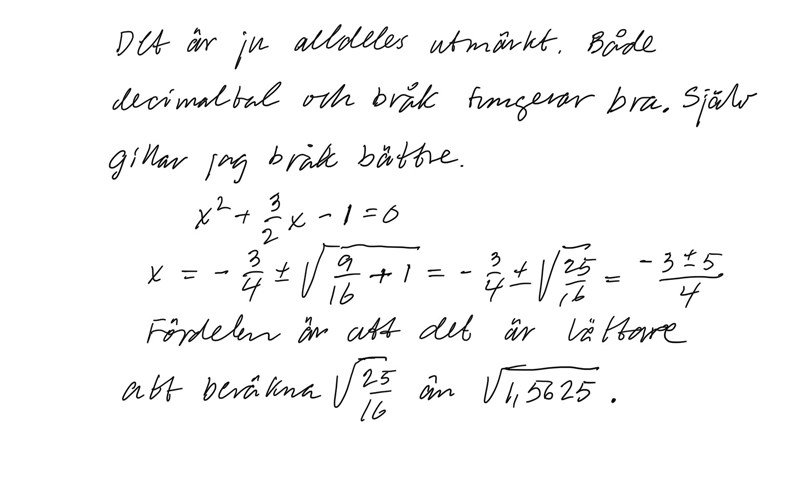 Det är ju alldeles utmärkt. Både
decimaltal och bråk fungerar bra. Själv
gillar jag bråk bättre.
x² + 3/2 x - 1 = 0
x = - 3/4 ± √(9/16 + 1) = - 3/4 ± √(25/16) = (-3 ± 5)/4
Fördelen är att det är lättare
att beräkna √(25/16) än √1,5625.